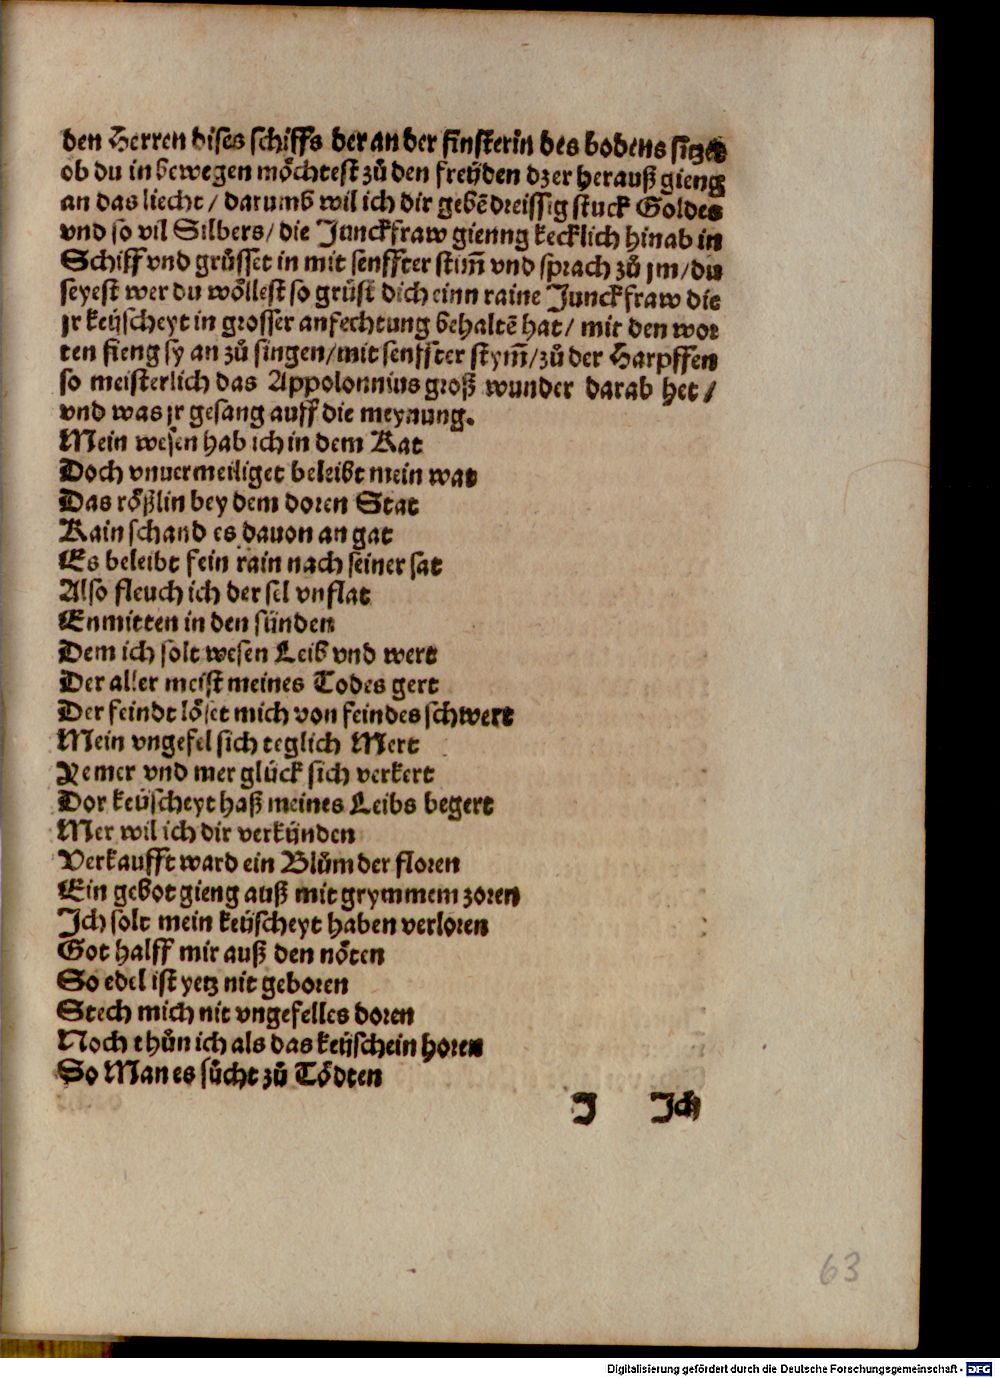 den Herren dises schiffs der an der finsterin des bodens sitzet
ob du in bewegen möchtest zů den freÿden dz er herauß gieng
an das liecht / darumb wil ich dir gebē dreissig stuck Goldes
vnd so vil Silbers / die Junckfraw gienng kecklich hinab in
Schiff vnd grůsset in mit senffter stim̄ vnd sprach zů jm / du
seyest wer du wöllest so grüst dich einn raine Junckfraw die
jr keüscheyt in grosser anfechtung behaltē hat / mit den wor
ten fieng sy an zů singen / mit senffter stym̄ / zů der Harpffen
so meisterlich das Appolonnius groß wunder darab het /
vnd was jr gesang auff die meynung.
Mein wesen hab ich in dem Kat
Doch vnuermeiliget beleibt mein wat
Das rößlin bey dem doren Stat
Kain schand es dauon an gat
Es beleibt fein rain nach seiner sat
Also fleuch ich der sel vnflat
Enmitten in den sünden
Dem ich solt wesen Leib vnd wert
Der aller meist meines Todes gert
Der feindt löset mich von feindes schwert
Mein vngefel sich teglich Mert
Yemer vnd mer glück sich verkert
Dor keüscheyt haß meines Leibs begert
Mer wil ich dir verkünden
Verkaufft ward ein Blům der floren
Ein gebot gieng auß mit grymmem zoren
Ich solt mein keüscheyt haben verloren
Got halff mir auß den nöten
So edel ist yetz nit geboren
Stech mich nit vngefelles doren
Noch thůn ich als das keüsch ein horen
So Man es sůcht zů Tödten
J Ich
63
Digitalisierung gefördert durch die Deutsche Forschungsgemeinschaft - DFG